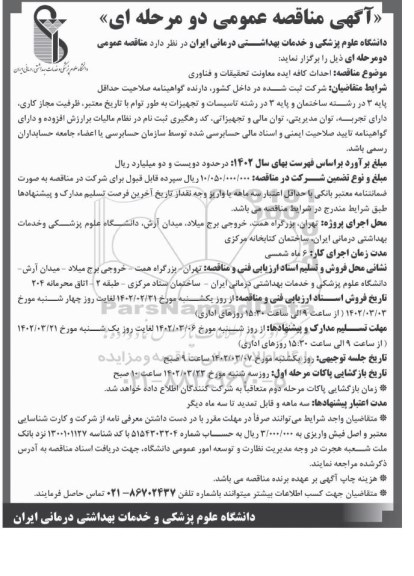 «آگهی مناقصه عمومی دو مرحله ای»
دانشگاه علوم پزشکی و خدمات بهداشتی درمانی ایران
دانشگاه علوم پزشکی و خدمات بهداشتی درمانی ایران در نظر دارد مناقصه عمومی
دومرحله ای ذیل را برگزار نماید:
موضوع مناقصه: احداث کافه ایده معاونت تحقیقات و فناوری
شرایط متقاضیان: شرکت ثبت شده در داخل کشور، دارنده گواهینامه صلاحیت حداقل
پایه ۳ در رشته ساختمان و پایه ۳ در رشته تاسیسات و تجهیزات به طور توام با تاریخ معتبر، ظرفیت مجاز کاری،
دارای تجربه، توان مدیریتی، توان مالی و تجهیزاتی، کد رهگیری ثبت نام در نظام مالیات برارزش افزوده و دارای
گواهینامه تایید صلاحیت ایمنی و اسناد مالی حسابرسی شده توسط سازمان حسابرسی یا اعضاء جامعه حسابداران
رسمی باشد.
مبلغ برآورد براساس فهرست بهای سال ۱۴۰۲: درحدود دویست و دو میلیارد ریال
مبلغ و نوع تضمین شرکت در مناقصه: ۱۰/۰۵۰/۰۰۰/۰۰۰ ریال سپرده قابل قبول برای شرکت در مناقصه به صورت
ضمانتنامه معتبر بانکی با حداقل اعتبار سه ماهه یا واریز وجه نقد از تاریخ آخرین فرصت تسلیم مدارک و پیشنهادها
طبق شرایط مندرج در شرایط مناقصه می باشد.
محل اجرای پروژه: تهران، بزرگراه همت، خروجی برج میلاد، میدان آرش، دانشگاه علوم پزشکی وخدمات
بهداشتی درمانی ایران، ساختمان کتابخانه مرکزی
مدت زمان اجرای کار: ۶ ماه شمسی
نشانی محل فروش و تسلیم اسناد ارزیابی فنی و مناقصه: تهران- بزرگراه همت - خروجی برج میلاد - میدان آرش -
دانشگاه علوم پزشکی و خدمات بهداشتی درمانی ایران - ساختمان ستاد مرکزی - طبقه ۲ - اتاق محرمانه ۲۰۴
تاریخ فروش اسناد ارزیابی فنی و مناقصه: از روز یکشنبه مورخ ۱۴۰۲/۰۲/۳۱ لغایت روز چهار شنبه مورخ
۱۴۰۲/۰۳/۰۳ ( از ساعت ۹ الی ساعت ۱۵:۳۰ روزهای اداری)
مهلت تسلیم مدارک و پیشنهادها: از روز شنبه مورخ ۱۴۰۲/۰۳/۰۶ لغایت روز یک شنبه مورخ ۱۴۰۲/۰۳/۲۱
( از ساعت ۹ الی ساعت ۱۵:۳۰ روزهای اداری)
تاریخ جلسه توجیهی: روز یکشنبه مورخ ۱۴۰۲/۰۳/۰۷ ساعت ۹ صبح
تاریخ بازگشایی پاکات مرحله اول: روزسه شنبه مورخ ۱۴۰۲/۰۳/۲۳ ساعت ۱۰ صبح
* زمان بازگشایی پاکات مرحله دوم متعاقباً به شرکت کنندگان اطلاع داده خواهد شد.
مدت اعتبار پیشنهادها: سه ماهه و قابل تمدید تا سه ماه دیگر
* متقاضیان واجد شرایط می‌توانند صرفاً در مهلت مقرر با در دست داشتن معرفی نامه از شرکت و کارت شناسایی
معتبر و اصل فیش واریزی به ۳/۰۰۰/۰۰۰ ریال به حساب شماره ۵۱۵۴۳۰۳۲۰۴ با کد شناسه ۱۳۰۰۱۰۱۱۲۷ نزد بانک
ملت شعبه هجرت در وجه مدیریت نظارت و توسعه امور عمومی دانشگاه، جهت دریافت اسناد مناقصه به آدرس
ذکرشده مراجعه نمایند.
* هزینه چاپ آگهی بر عهده برنده مناقصه می باشد.
* متقاضیان جهت کسب اطلاعات بیشتر میتوانند باشماره تلفن ۸۶۷۰۲۴۳۷-۰۲۱ تماس حاصل فرمایند.
دانشگاه علوم پزشکی و خدمات بهداشتی درمانی ایران
ParsNamadData